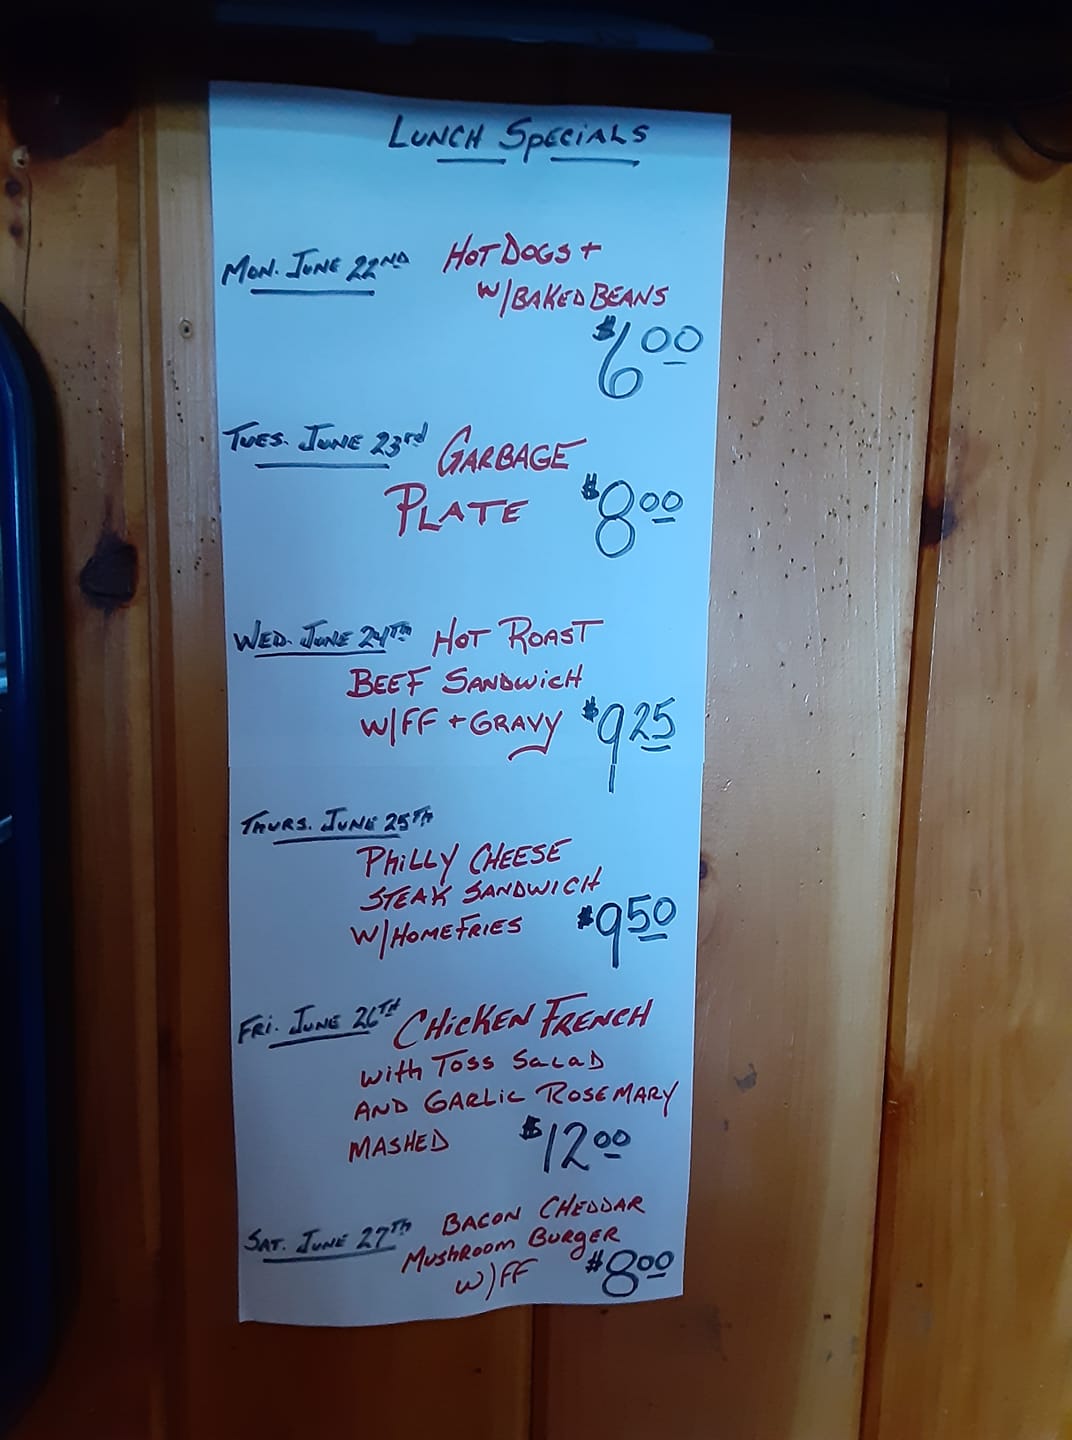 LUNCH SPECIALS
MON. JUNE 22ND HOT DOGS +
W/BAKED BEANS
$6.00
TUES. JUNE 23rd GARBAGE
PLATE $8.00
WED. JUNE 24TH HOT ROAST
BEEF SANDWICH
W/FF + GRAVY $9.25
THURS. JUNE 25TH
PHILLY CHEESE
STEAK SANDWICH
W/HOMEFRIES $9.50
FRI. JUNE 26TH CHICKEN FRENCH
with TOSS SALAD
AND GARLIC ROSEMARY
MASHED $12.00
SAT. JUNE 27TH BACON CHEDDAR
MUSHROOM BURGER
W/FF $8.00